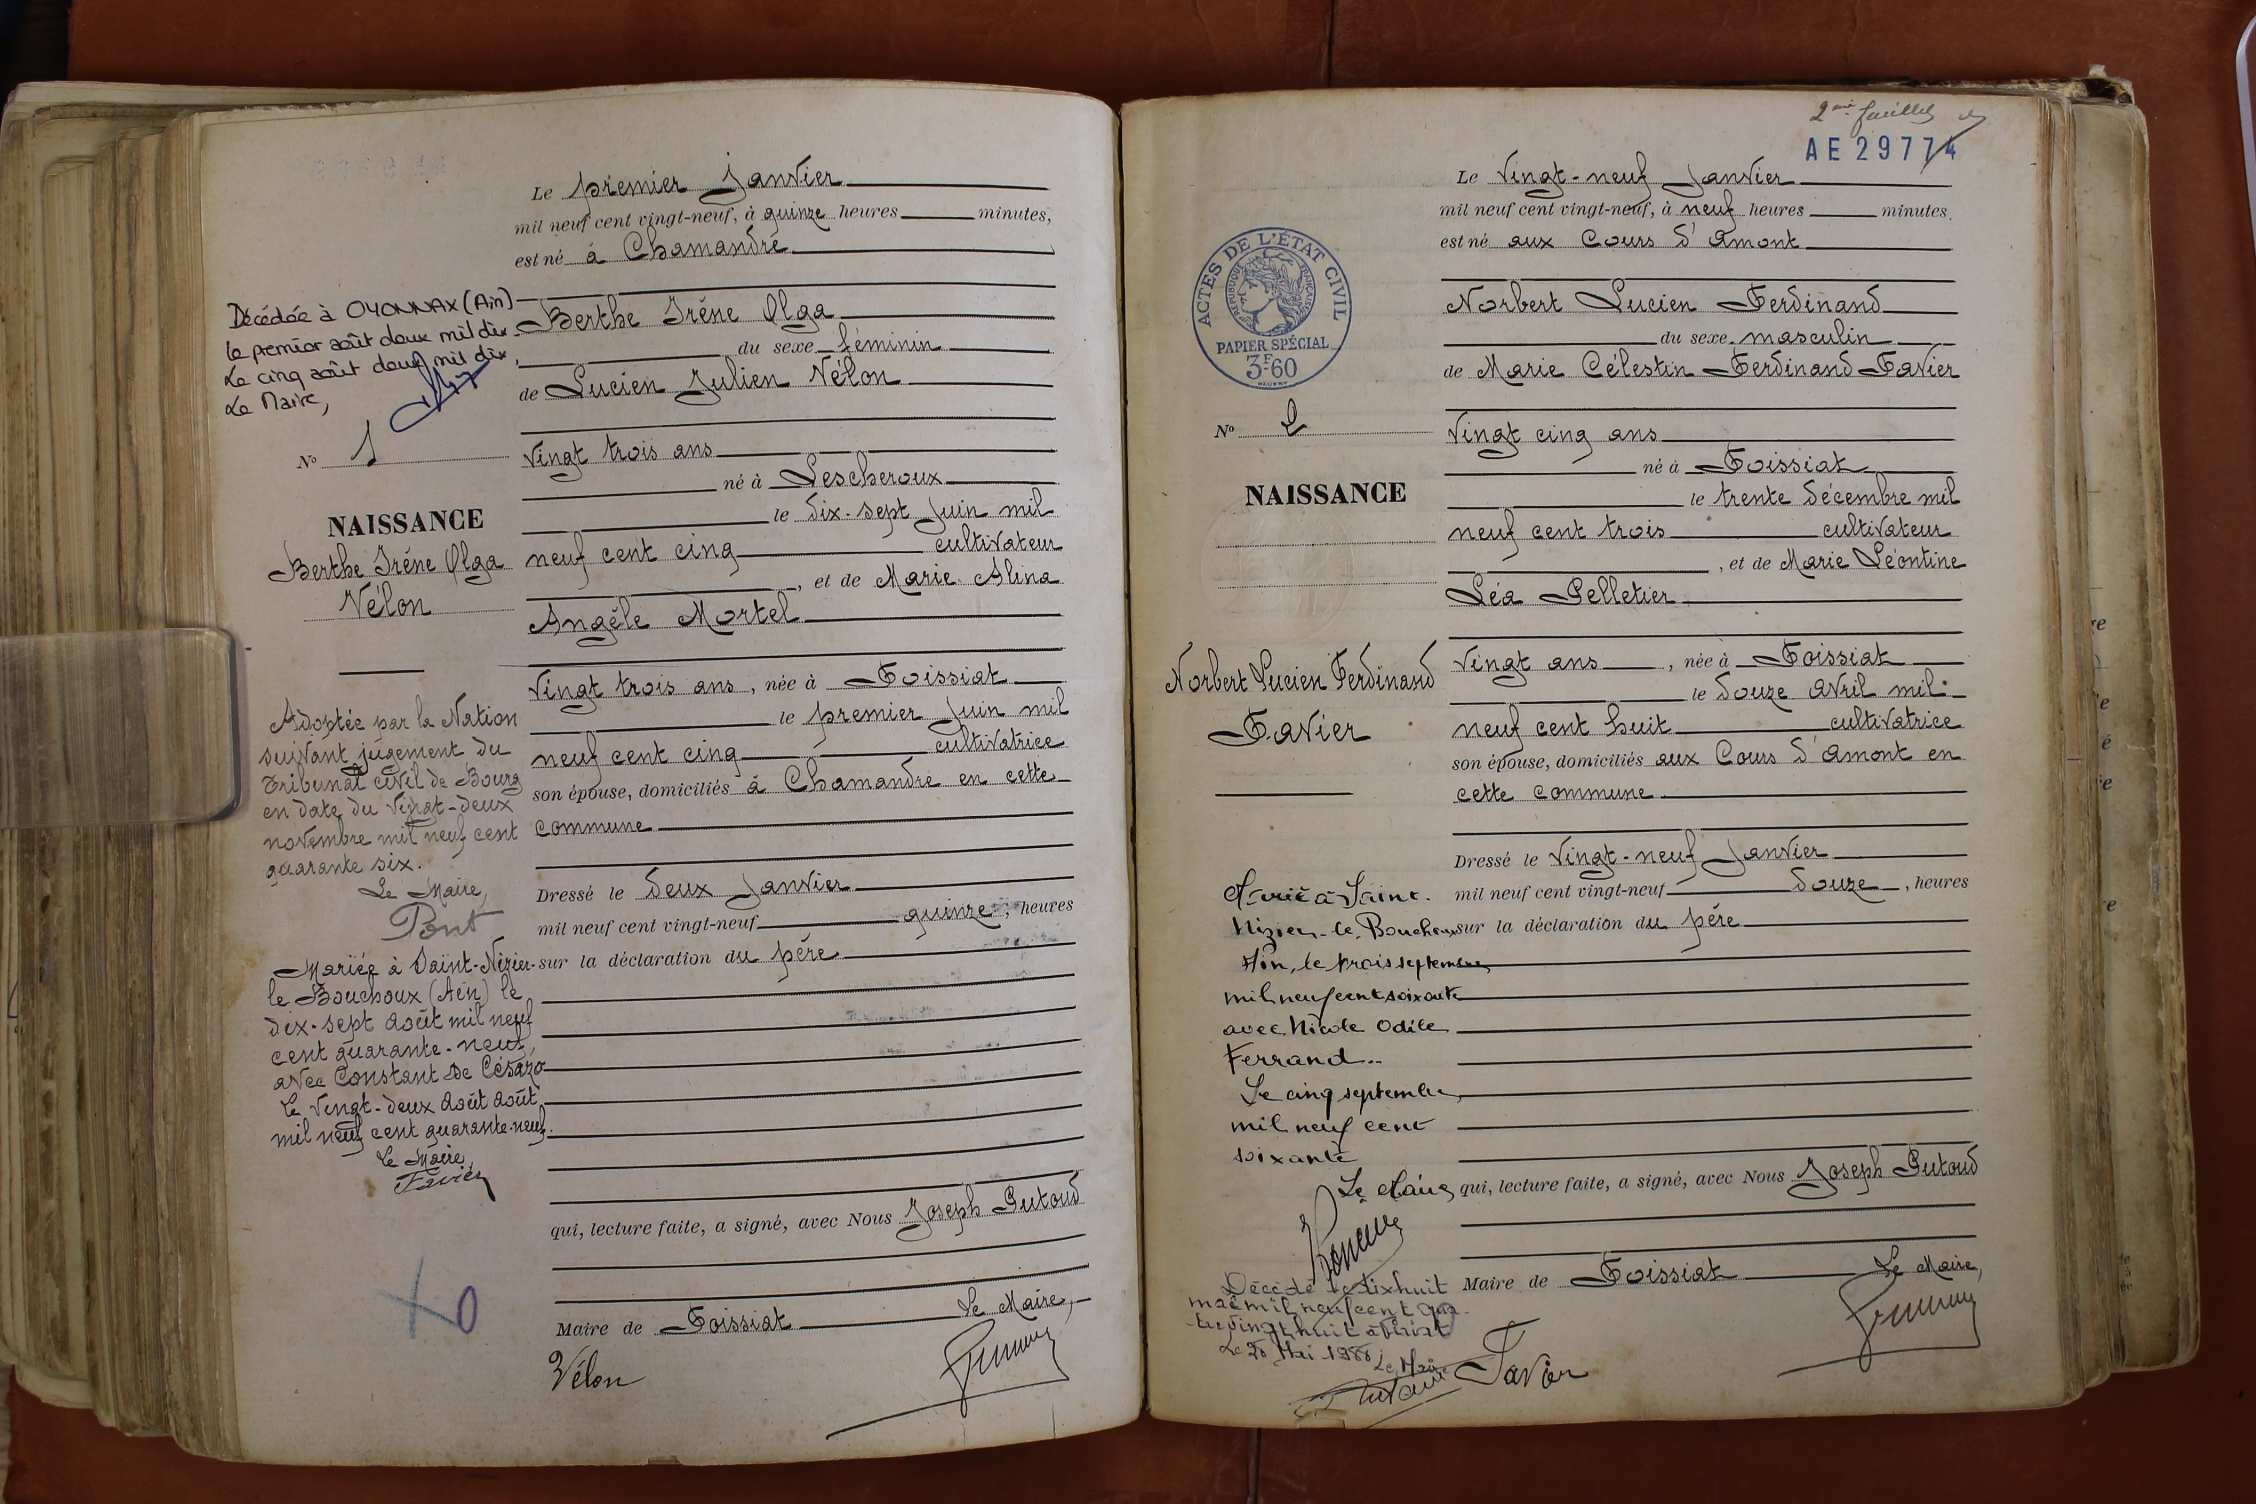 Le premier Janvier
mil neuf cent vingt-neuf, à quinze heures minutes,
est né à Chamandré
Berthe Irène Olga
du sexe féminin
de Lucien Julien Vélon
Vingt trois ans
né à Lescheroux
le dix-sept Juin mil
neuf cent cinq cultivateur
, et de Marie Alina
Angèle Mortel
Vingt trois ans, née à Foissiat
le premier Juin mil
neuf cent cinq cultivatrice
son épouse, domiciliés à Chamandré en cette
commune
Dressé le deux Janvier
mil neuf cent vingt-neuf quinze, heures
sur la déclaration du père
qui, lecture faite, a signé, avec Nous Joseph Putoud
Maire de Foissiat Le Maire,
Vélon
Décédée à OYONNAX (Ain)
le premier août deux mil dix.
Le cinq août deux mil dix,
Le Maire,
No 1
NAISSANCE
Berthe Irène Olga
Vélon
Adoptée par la Nation
suivant jugement du
Tribunal civil de Bourg
en date du Vingt-deux
novembre mil neuf cent
quarante six.
Le Maire,
Pont
Mariée à Saint-Nizier-
le Bouchoux (Ain) le
dix-sept août mil neuf
cent quarante-neuf,
avec Constant De Césaro
Le Vingt-deux août août
mil neuf cent quarante-neuf.
Le Maire,
Favier
2me feuillet
AE 29774
Le Vingt-neuf Janvier
mil neuf cent vingt-neuf, à neuf heures minutes.
est né aux Cours d'Amont
Norbert Lucien Ferdinand
du sexe masculin
de Marie Célestin Ferdinand Favier
Vingt cinq ans
né à Foissiat
le trente décembre mil
neuf cent trois cultivateur
, et de Marie Léontine
Léa Pelletier
Vingt ans, née à Foissiat
le douze avril mil
neuf cent huit cultivatrice
son épouse, domiciliés aux Cours d'Amont en
cette commune
Dressé le Vingt-neuf Janvier
mil neuf cent vingt-neuf douze, heures
sur la déclaration du père
qui, lecture faite, a signé, avec Nous Joseph Putoud
Maire de Foissiat Le Maire,
Favier
ACTES DE L'ÉTAT CIVIL
RÉPUBLIQUE FRANÇAISE
PAPIER SPÉCIAL
3F60
No 2
NAISSANCE
Norbert Lucien Ferdinand
Favier
Marié à Saint-
Nizier-le-Bouchoux
Ain, le trois septembre
mil neuf cent soixante
avec Nicole Odile
Ferrand..
Le cinq septembre
mil neuf cent
soixante
Le Maire
Décédé le dix huit
mai mil neuf cent qua-
tre vingt huit à Viriat
Le 20 Mai 1988
Le Maire